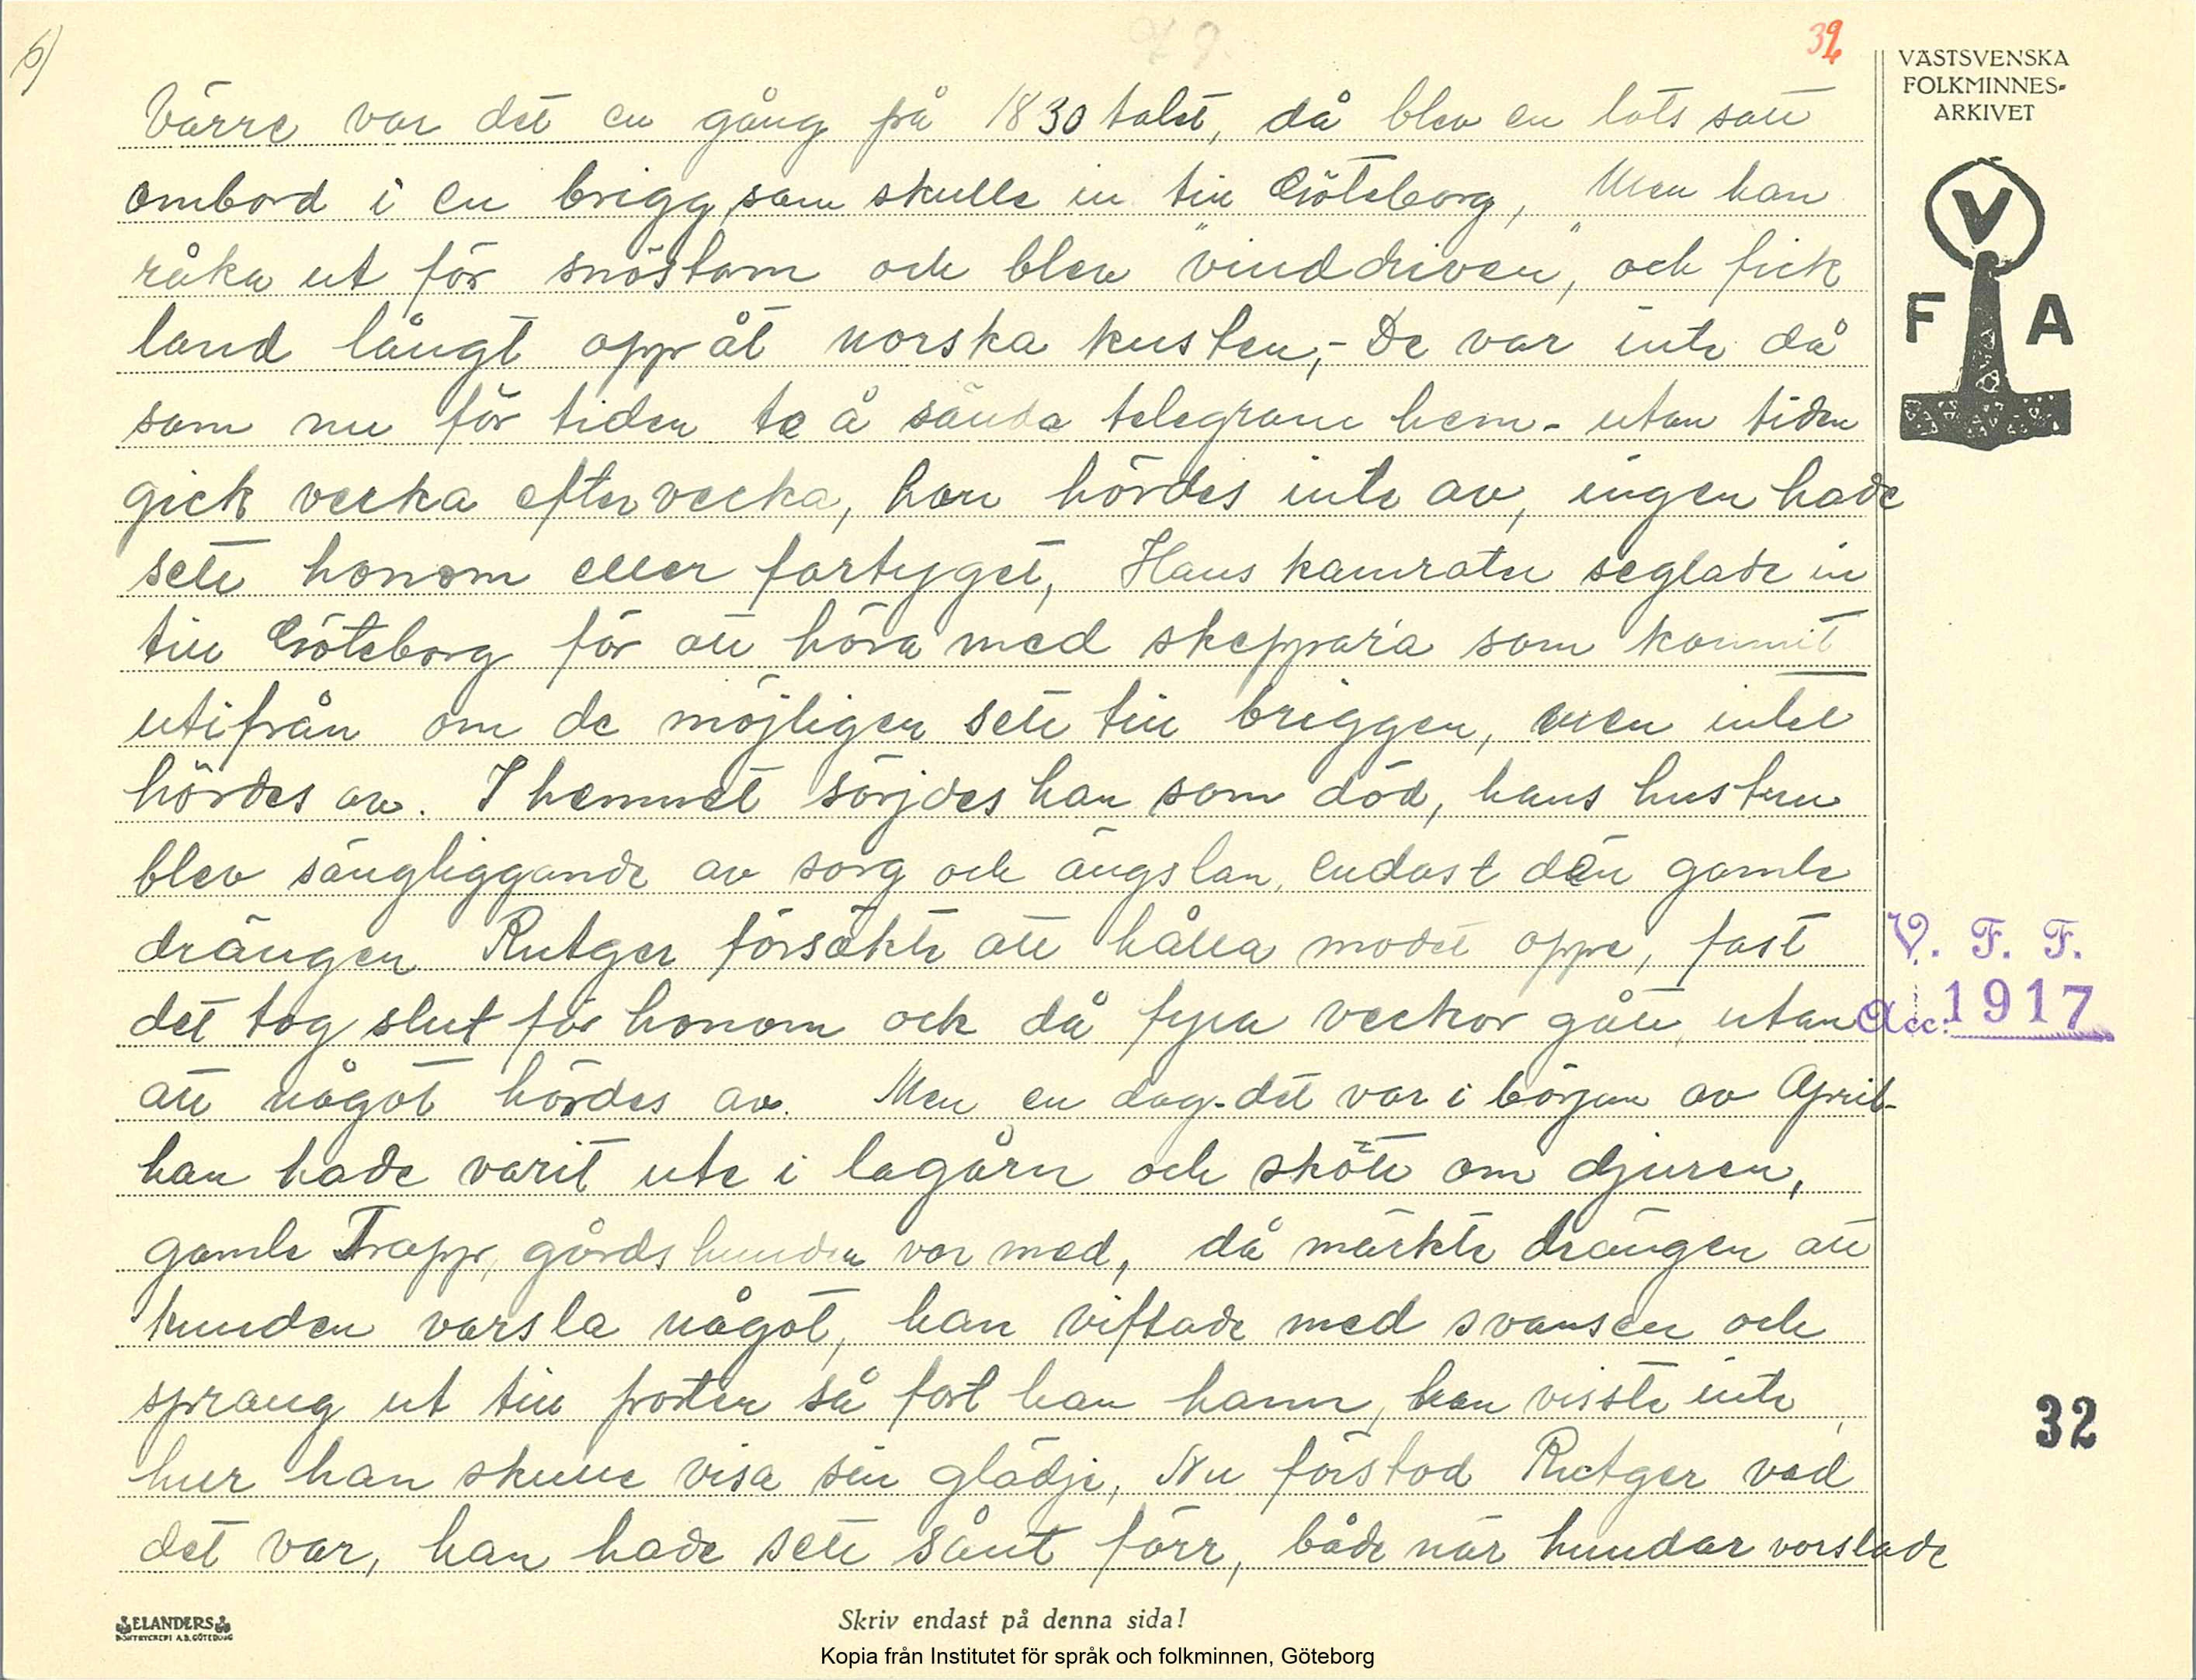 6)
39
VÄSTSVENSKA
FOLKMINNES-
ARKIVET
V
F A
Värre var det en gång på 1830 talet, då blev en lots satt
ombord i en brigg som skulle in till Göteborg, Men han
råka ut för snöstorm och blev "vinddriven", och fick
land långt oppåt norska kusten,- De var inte då
som nu för tiden te å sända telegram hem - utan tiden
gick vecka efter vecka, han hördes inte av, ingen hade
sett honom eller fartyget, Hans kamrater seglade in
till Göteborg för att höra med skeppara som kommit
utifrån om de möjligen sett till briggen, men intet
hördes av. I hemmet sörjdes han som död, hans hustru
blev sängliggande av sorg och ängslan, endast den gamle
drängen Rutger försökte att hålla modet oppe, fast
det tog slut för honom ock då fyra veckor gått, utan
att något hördes av. Men en dag - det var i början av April-
han hade varit ute i lagårn och skött om djuren,
gamle Trapp, gårdshunden var med, då märkte drängen att
hunden varsla något, han viftade med svansen och
sprang ut till porten så fort han hann, han visste inte
hur han skulle visa sin glädje, Nu förstod Rutger vad
det var, han hade sett sånt förr, både när hundar varslade
V. F. F.
Acc: 1917
32
ELANDERS
BOKTRYCKERI A.B. GÖTEBORG
Skriv endast på denna sida!
Kopia från Institutet för språk och folkminnen, Göteborg